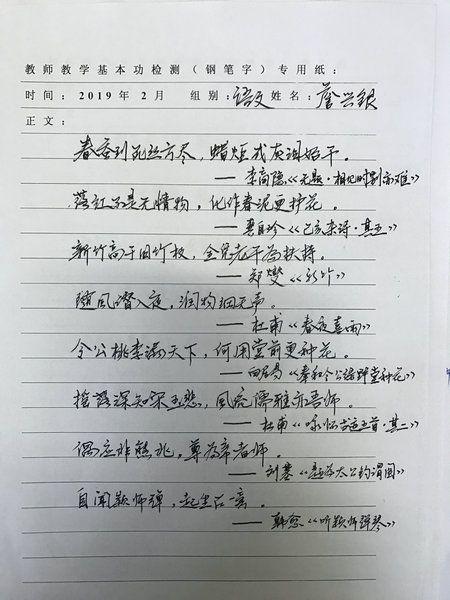 教师教学基本功检测（钢笔字）专用纸：
时间：2019年2月 组别：语文 姓名：詹兴银
正文：
春蚕到死丝方尽，蜡炬成灰泪始干。
——李商隐《无题·相见时别亦难》
落红不是无情物，化作春泥更护花。
——龚自珍《己亥杂诗·其五》
新竹高于旧竹枝，全凭老干为扶持。
——郑燮《新竹》
随风潜入夜，润物细无声。
——杜甫《春夜喜雨》
令公桃李满天下，何用堂前更种花。
——白居易《奉和令公绿野堂种花》
摇落深知宋玉悲，风流儒雅亦吾师。
——杜甫《咏怀古迹五首·其二》
偶应非熊兆，尊为帝者师。
——刘基《题太公钓渭图》
自闻颖师弹，起坐在一旁。
——韩愈《听颖师弹琴》